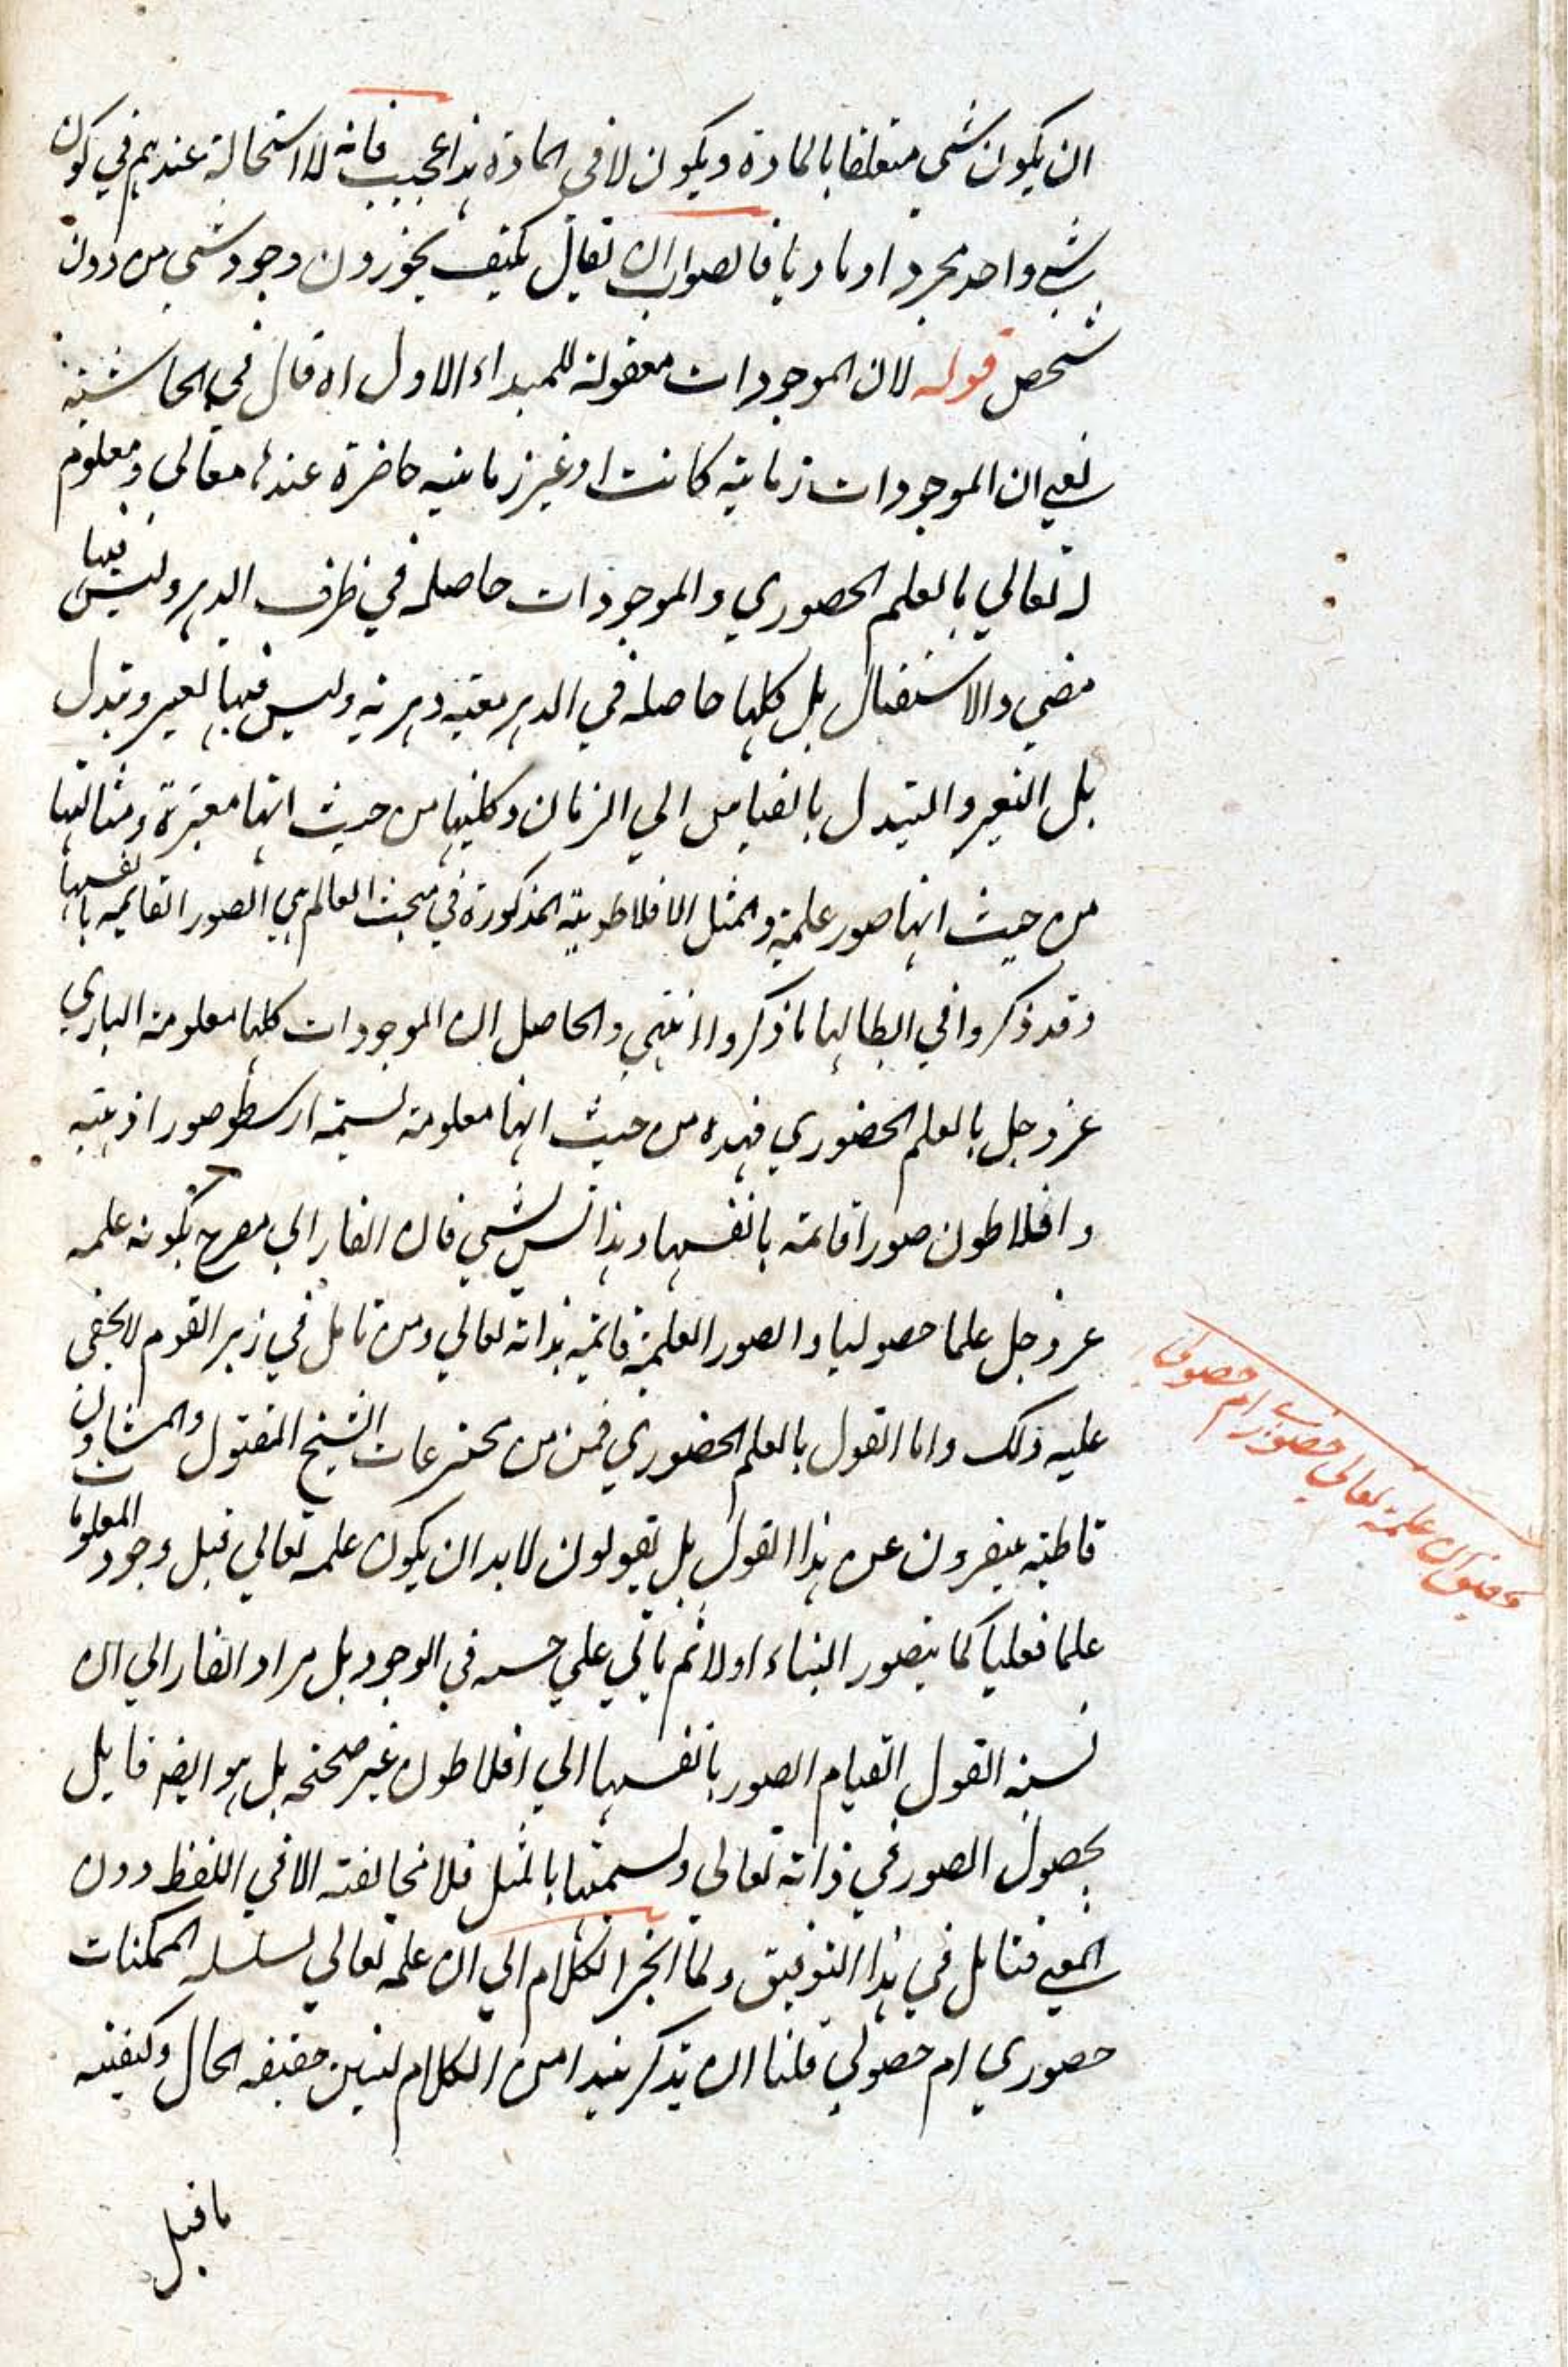 ان يكون شي متعلقا بالمادة ويكون لا في المادة هذا عجيب فانه لا استحالة عندهم في كون
شي واحد مجردا وماديا فالصواب ان يقال كيف يجوزون وجود شي من دون
تشخص قوله لان الموجودات معقولة للمبداء الاول اه قال في الحاشية
يعني ان الموجودات زمانية كانت او غير زمانية حاضرة عنده تعالى ومعلوم
له تعالي بالعلم الحضوري والموجودات حاصلة في ظرف الدهر وليس فيها
مضي والاستقبال بل كلها حاصلة في الدهر معية دهرية وليس فيها تغير وتبدل
بل التغير والتبدل بالقياس الي الزمان وكليها من حيث انها متغيرة ومثاليتها
من حيث انها صور علمية والمثل الافلاطونية المذكورة في مبحث العالم هي الصور القايمة بانفسها
وقد ذكروا في ابطالها ما ذكروا انتهي والحاصل ان الموجودات كلها معلومة الباري
عز وجل بالعلم الحضوري فهذه من حيث انها معلومة تسميه ارسطو صورا ذهنية
وافلاطون صورا قائمة بانفسها وهذا ليس بشي فان الفارابي مصرح بكونه علمه
عز وجل علما حصوليا والصور العلمية قائمة بذاته تعالي ومن تامل في زبر القوم لا يخفي
عليه ذلك واما القول بالعلم الحضوري فمن مخترعات الشيخ المقتول والمشاؤن
قاطبة ينفرون عن هذا القول بل يقولون لابد ان يكون علمه تعالي قبل وجود المعلومات
علما فعليا كما يتصور البناء اولا ثم ياتي علي حسبه في الوجود بل مراد الفارابي ان
نسبة القول القيام الصور بانفسها الي افلاطون غير صحيحة بل هو ايضا قايل
بحصول الصور في ذاته تعالي وتسميتها بالمثل فلا مخالفة الا في اللفظ دون
المعني فتامل في هذا التوفيق ولما انجر الكلام الي ان علمه تعالي بسلسلة الممكنات
حضوري ام حصولي فلنا ان نذكر نبذا من الكلام لنبين حقيقة الحال وكيفية
ما قيل
تحقيق ان علمه تعالي حضوري ام حصولي